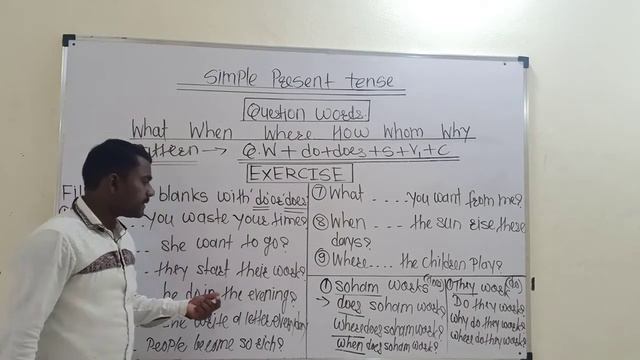 Simple Present tense
Question words
What When Where How Whom Why
Pattern → Q.W + do+does+S+V1+C
EXERCISE
blanks with 'do or does'
... you waste your time?
... she want to go?
.. they start their work?
he do in the evening?
she write a letter everyday
. People become so rich?
⑦ What .... you want from me?
⑧ When ... the sun rise these
days?
⑨ Where.... the children Play?
① Soham works
→ does soham work?
where does soham work?
when does soham work?
They work (do)
Do they work?
why do they work?
where do they work?